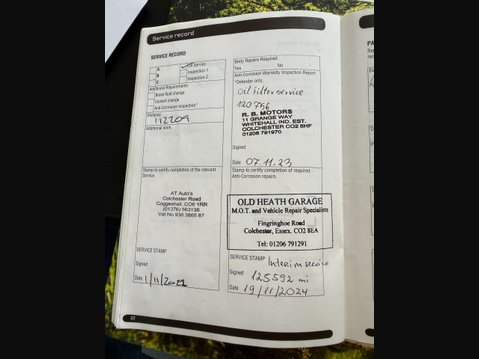 Service record
SERVICE RECORD
A
Oil Service
B
Inspection 1
C
Inspection 2
Additional Requirements
Brake fluid change
Coolant change
Anti-Corrosion Inspection*
Distance
112209
Additional work
Stamp to certify completion of the relevant
Service
AT Auto's
Colchester Road
Coggeshall, CO6 1RR
(01376) 563138
Vat No 936 3865 87
SERVICE STAMP
Signed
Date 1/11/2022
22
Body Repairs Required
Yes No
Anti-Corrosion Warranty Inspection Report
*Defender only:
Oil filter service
120756
R. B. MOTORS
11 GRANGE WAY
WHITEHALL IND. EST.
COLCHESTER CO2 8HF
01206 791970
Signed
Date 07.11.23
Stamp to certify completion of required
Anti-Corrosion repairs.
OLD HEATH GARAGE
M.O.T. and Vehicle Repair Specialists
Fingringhoe Road
Colchester, Essex. CO2 8EA
Tel: 01206 791291
SERVICE STAMP Interim service
Signed 125592 mi
Date 19/11/2024